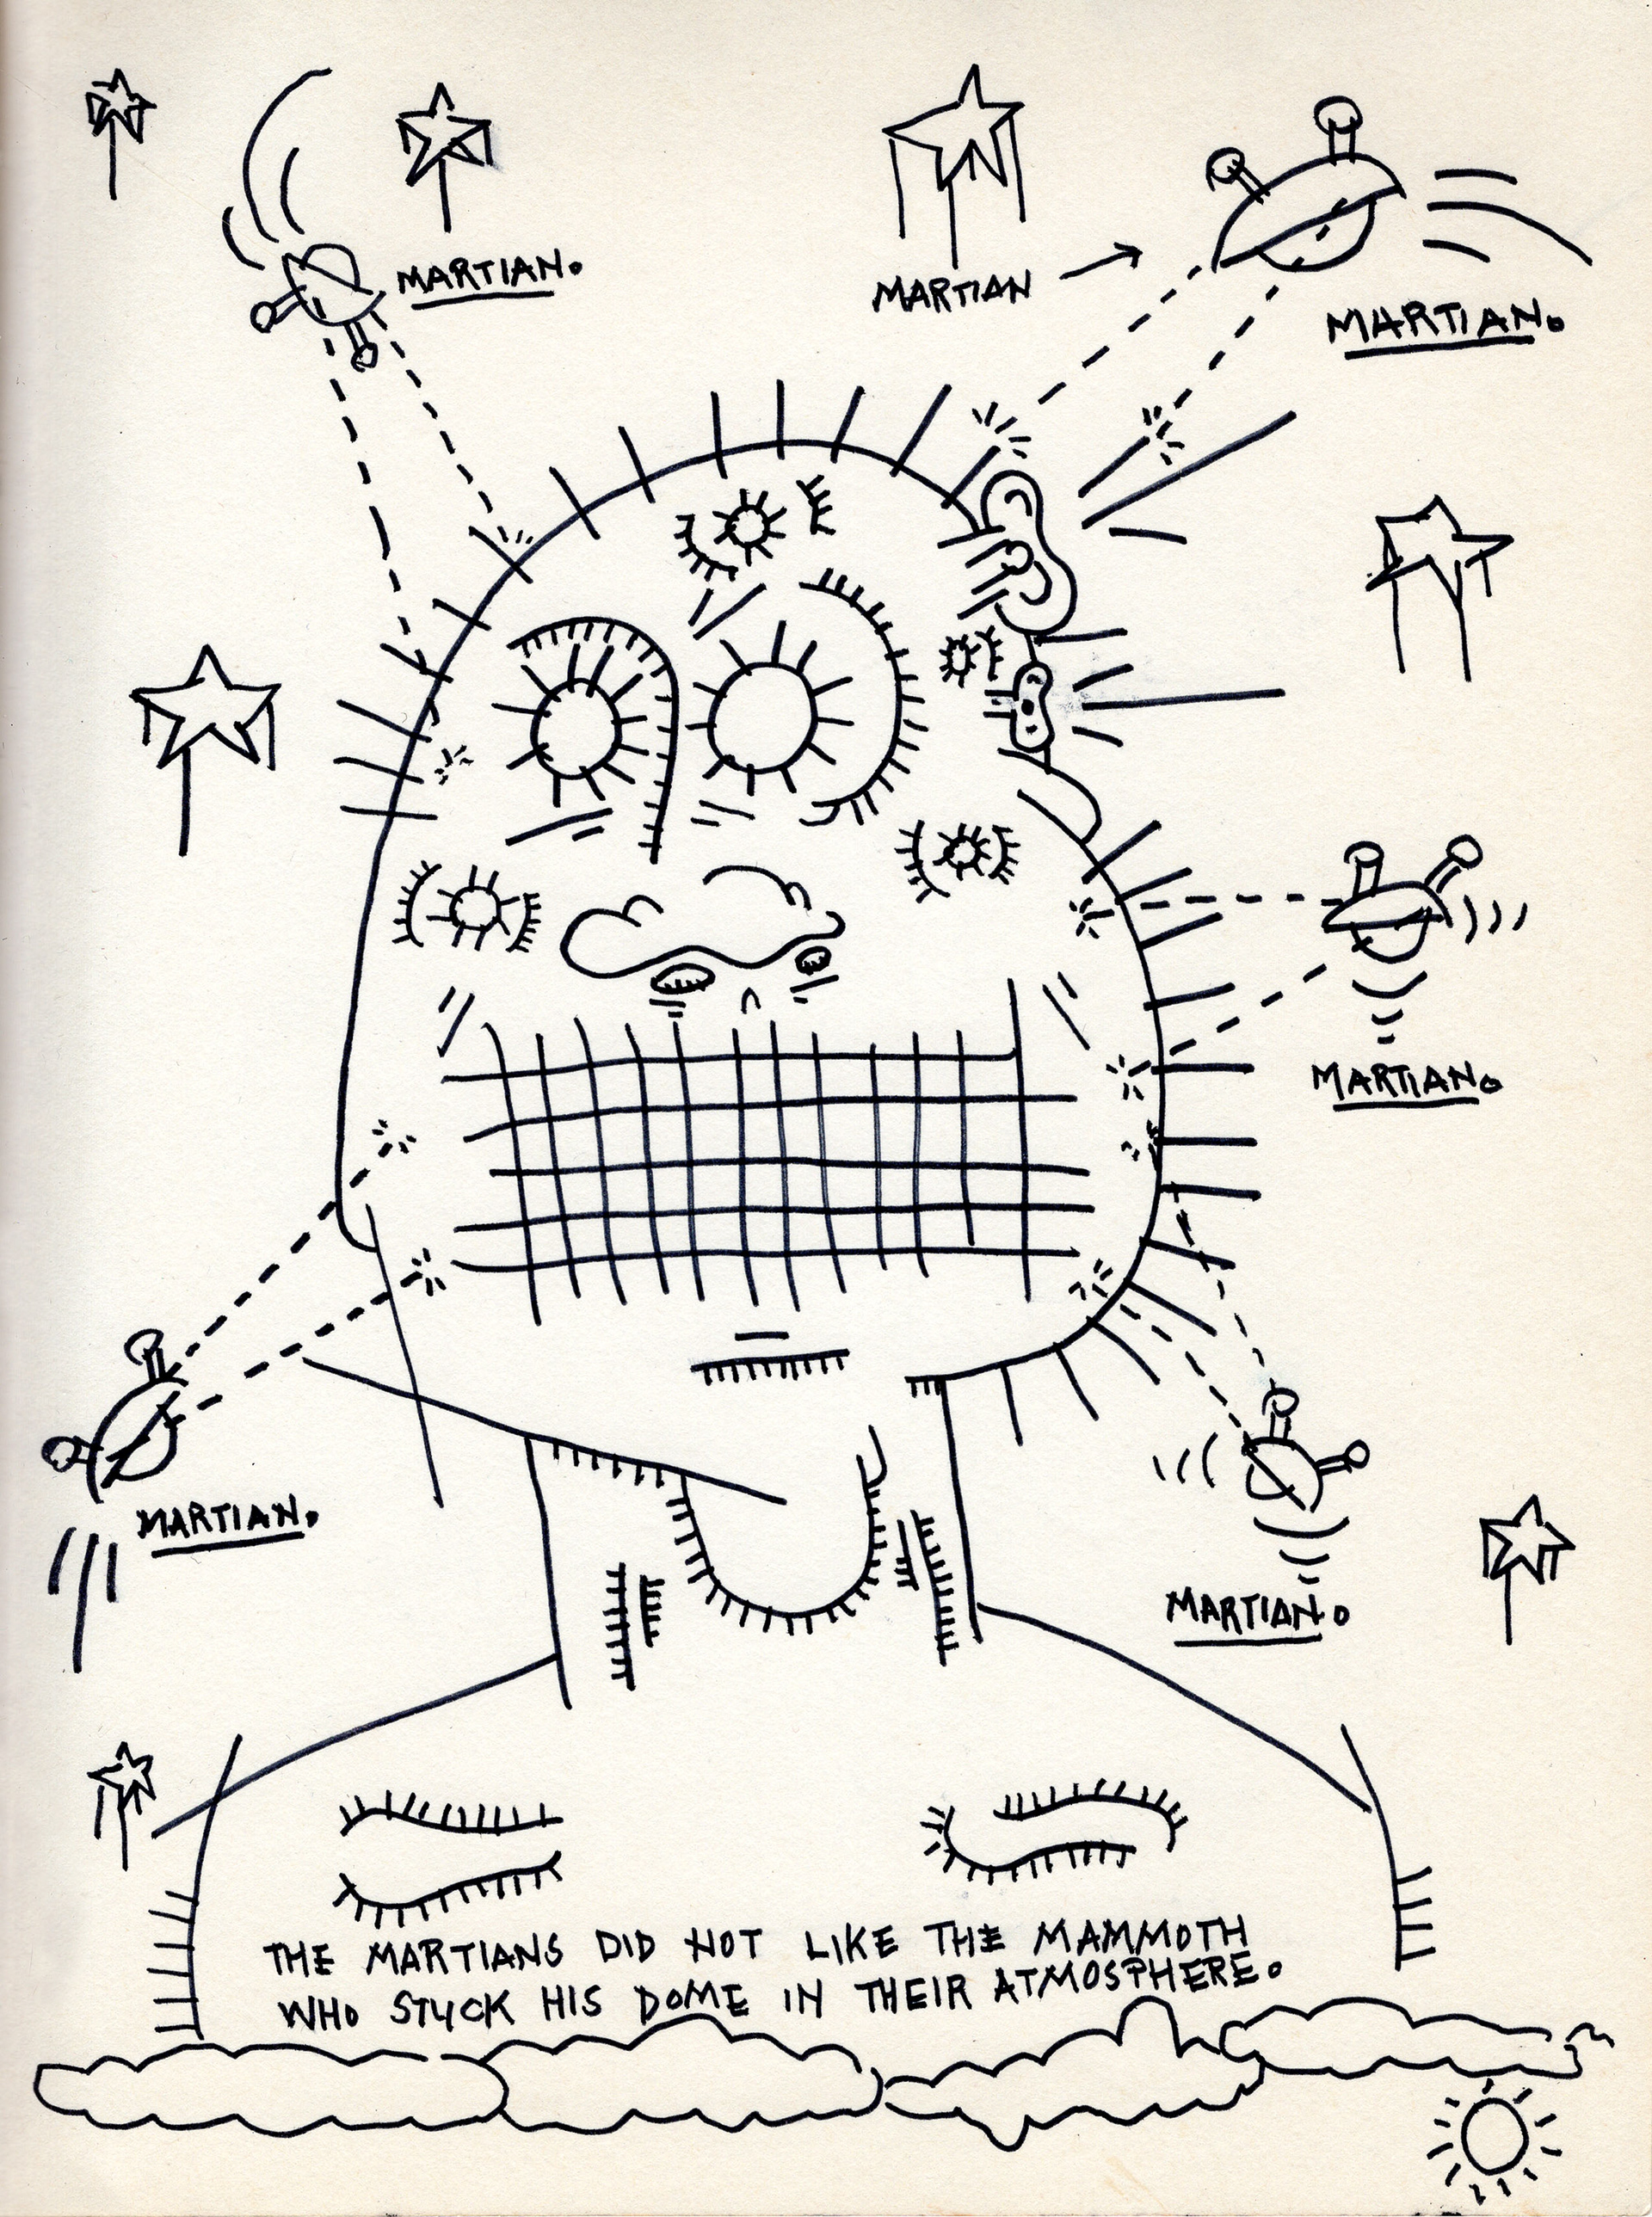 MARTIAN.
MARTIAN
MARTIAN.
MARTIAN.
MARTIAN.
MARTIAN.
THE MARTIANS DID NOT LIKE THE MAMMOTH
WHO STUCK HIS DOME IN THEIR ATMOSPHERE.